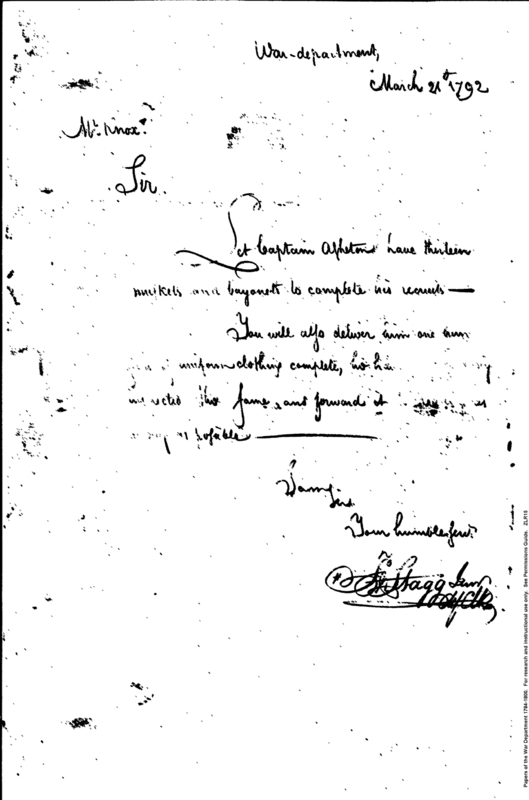 War-department,
March 21st 1792
Mr. Knox.
Sir.
Let Captain Asheton have thirteen
muskets and bayonets to complete his recruits —
You will also deliver him one hun
uniform clothing complete, he
the same, and forward it
as possible
I am
Sir
Your humble Servt.
Jno Stagg Junr
Papers of the War Department 1784-1800. For research and instructional use only. See Permissions Guide. ZLR15